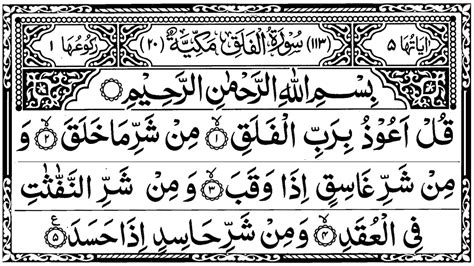 اٰیَاتُهَا ۵ (۱۱۳) سُوْرَةُ الْفَلَقِ مَكِّيَّةٌ (۲۰) رُكُوْعُهَا ۱
بِسْمِ اللّٰهِ الرَّحْمٰنِ الرَّحِيْمِ
قُلْ اَعُوْذُ بِرَبِّ الْفَلَقِ ۱ مِنْ شَرِّ مَا خَلَقَ ۲ وَ
مِنْ شَرِّ غَاسِقٍ اِذَا وَقَبَ ۳ وَ مِنْ شَرِّ النَّفّٰثٰتِ
فِی الْعُقَدِ ۴ وَ مِنْ شَرِّ حَاسِدٍ اِذَا حَسَدَ ۵ ع